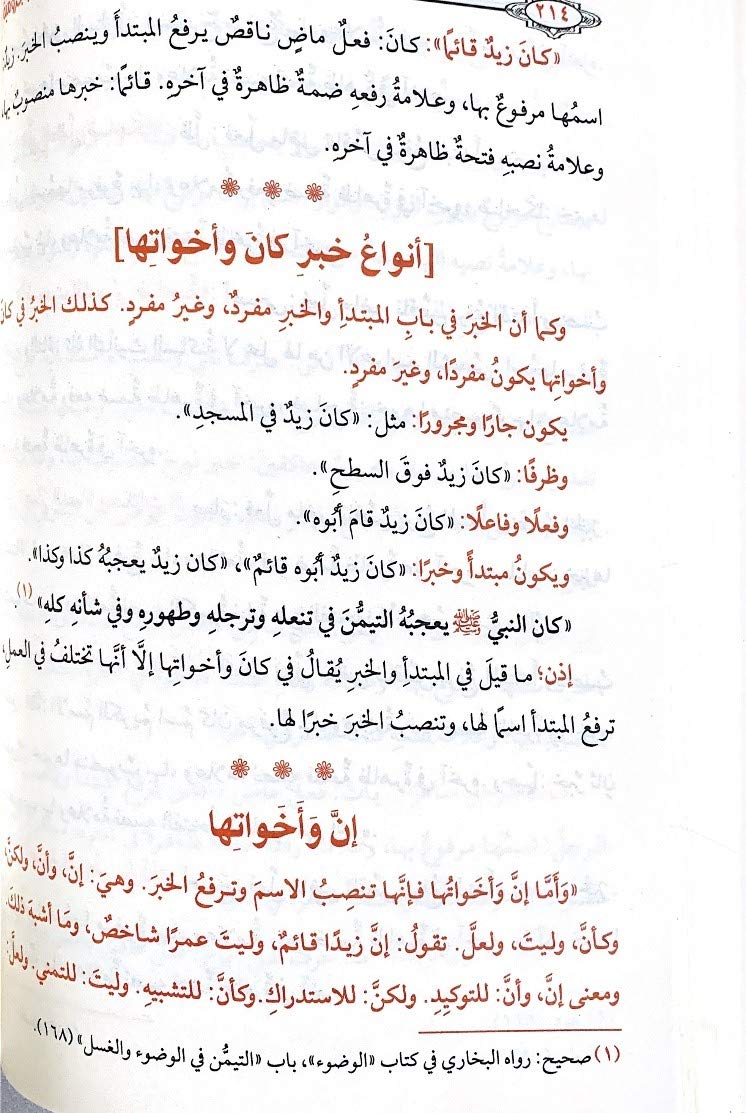 ٢١٤
«كانَ زيدٌ قائمًا»: كانَ: فعلٌ ماضٍ ناقصٌ يرفعُ المبتدأَ وينصبُ الخبرَ. زيدٌ:
اسمُها مرفوعٌ بها، وعلامةُ رفعهِ ضمةٌ ظاهرةٌ في آخرهِ. قائمًا: خبرها منصوبٌ بها،
وعلامةُ نصبهِ فتحةٌ ظاهرةٌ في آخرهِ.
[أنواعُ خبرِ كانَ وأخواتِها]
وكما أن الخبَرَ في بابِ المبتدأِ والخبرِ مفردٌ، وغيرُ مفردٍ. كذلك الخبرُ في كانَ
وأخواتِها يكونُ مفردًا، وغيرَ مفردٍ.
يكون جارًا ومجرورًا: مثل: «كانَ زيدٌ في المسجدِ».
وظرفًا: «كانَ زيدٌ فوقَ السطحِ».
وفعلًا وفاعلًا: «كانَ زيدٌ قامَ أبُوه».
ويكونُ مبتدأً وخبرًا: «كانَ زيدٌ أبُوه قائمٌ»، «كان زيدٌ يعجبُهُ كذا وكذا».
«كان النبيُّ ﷺ يعجبُهُ التيمُّنَ في تنعلهِ وترجلهِ وطهورهِ وفي شأنهِ كلهِ» (١).
إذن؛ ما قيلَ في المبتدأِ والخبرِ يُقالُ في كانَ وأخواتِها إلَّا أنَّها تختلفُ في العملِ،
ترفعُ المبتدأَ اسمًا لها، وتنصبُ الخبرَ خبرًا لها.
إنَّ وَأَخَواتِها
«وَأَمَّا إنَّ وَأَخَواتُها فإنَّها تنصِبُ الاسمَ وترفعُ الخبرَ. وهيَ: إنَّ، وأنَّ، ولكنَّ،
وكأنَّ، وليتَ، ولعلَّ. تقولُ: إنَّ زيدًا قائمٌ، وليتَ عمرًا شاخصٌ، ومَا أشبهَ ذلكَ.
ومعنى إنَّ، وأنَّ: للتوكيدِ. ولكنَّ: للاستدراكِ. وكأنَّ: للتشبيهِ. وليتَ: للتمني. ولعلَّ:
(١) صحيح: رواه البخاري في كتاب «الوضوء»، باب «التيمُّن في الوضوء والغسل» (١٦٨).